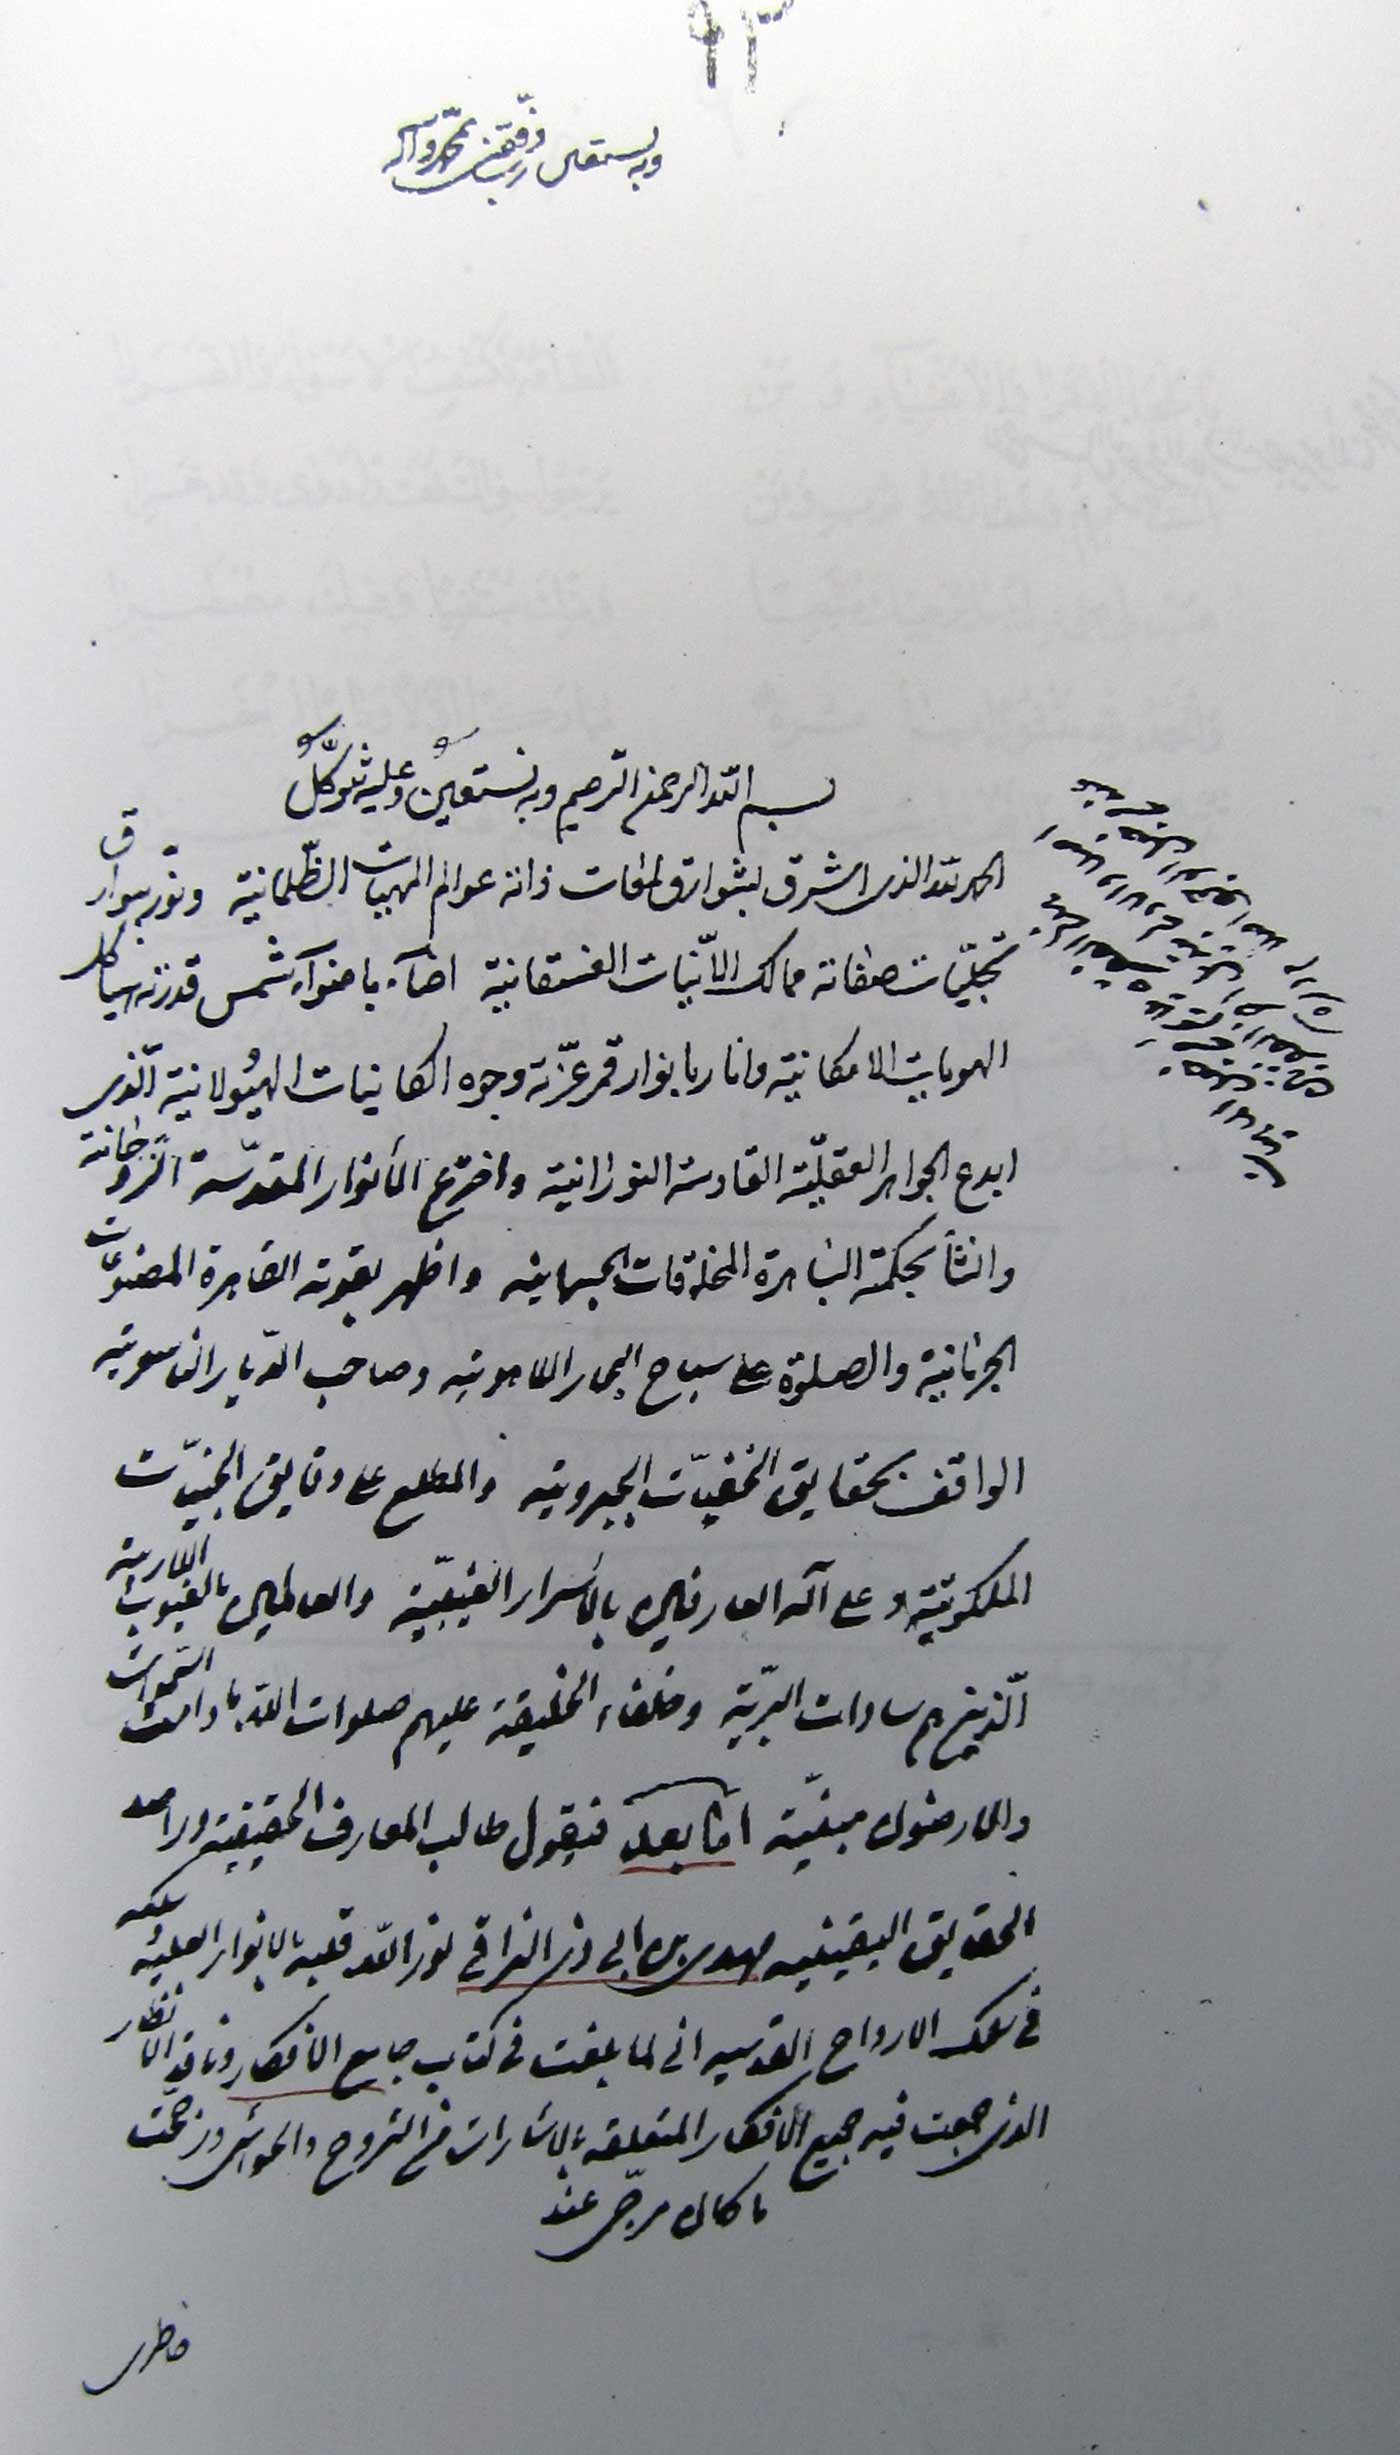 وبه نستعين رب وفقني بمحمد وآله
بسم الله الرحمن الرحيم وبه نستعين وعليه نتوكل
الحمد لله الذى اشرق بشوارق لمعات ذاته عوالم المهيات الظلمانية ونور ببوارق
تجليات صفاته ممالك الانيات الغسقانية اضاء باضواء شمس قدرته هياكل
الهويات الامكانية وانار بانوار قمر عزته وجوه الكاينات الهيولانية الذى
ابدع الجواهر العقلية القادسة النورانية واخترع الأنوار المقدسة الروحانية
وانشأ بحكمته الباهرة المخلوقات الجسمانية واظهر بقوته القاهرة المصنوعات
الجرمانية والصلوة على سباح البحار اللاهوتيه وصاحب الديار الناسوتيه
الواقف بحقايق الخفيات الجبروتيه والمطلع على دقايق الخبيات
الملكوتية وعلى آله العارفين بالأسرار الغيبية والعالمين بالغيوب اللاريبية
الذين هم سادات البرية وخلفاء الخليقة عليهم صلوات الله ما دامت السموات
والارضون مبنية اما بعد فيقول طالب المعارف الحقيقية وراصد
الحقايق اليقينيه مهدى بن ابى ذر النراقى نور الله قلبه بالانوار العلية وسلكه
فى سلك الارواح القدسيه انى لما بلغت فى كتاب جامع الافكار وناقد الانظار
الذى جمعت فيه جميع الافكار المتعلقه بالاشارات من الشروح والحواشى ورجحت
ما كان مرجحى عند
خاطرى